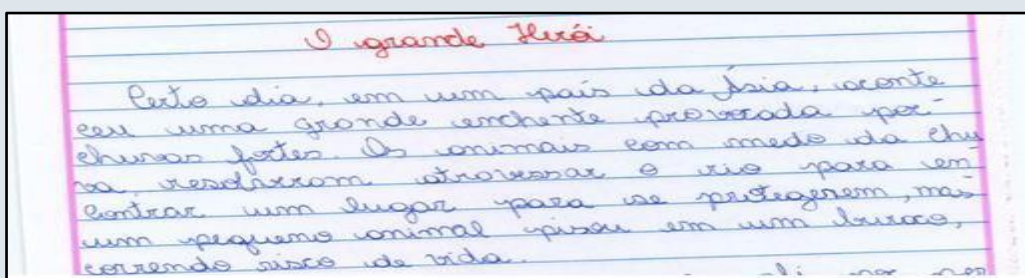 O grande Herói
Certo dia, em um país da Ásia, aconte
ceu uma grande enchente provocada por
chuvas fortes. Os animais com medo da chu
va, resolveram atravessar o rio para en
contrar um lugar para se protegerem, mas
um pequeno animal pisou em um buraco,
correndo risco de vida.